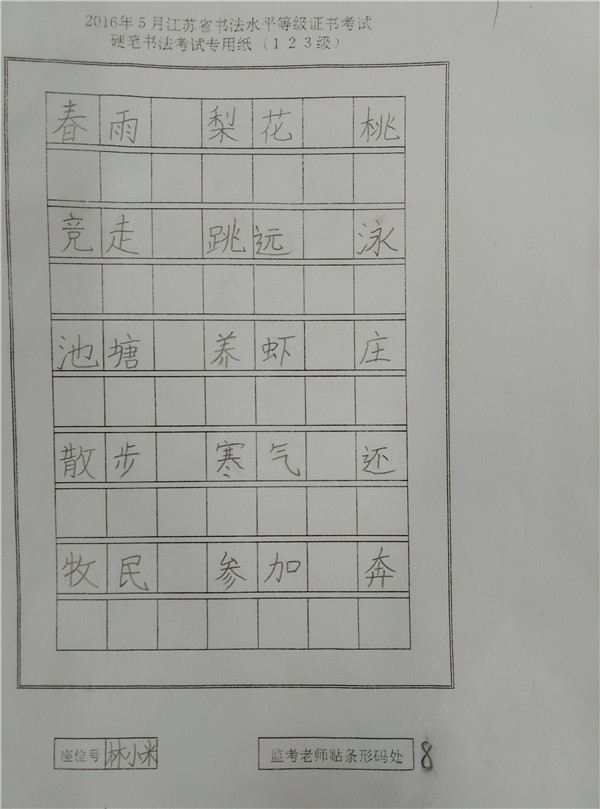 2016年5月江苏省书法水平等级证书考试
硬笔书法考试专用纸（123级）
春雨 梨花 桃
竞走 跳远 泳
池塘 养虾 庄
散步 寒气 还
牧民 参加 奔
座位号 林小米 监考老师贴条形码处 8